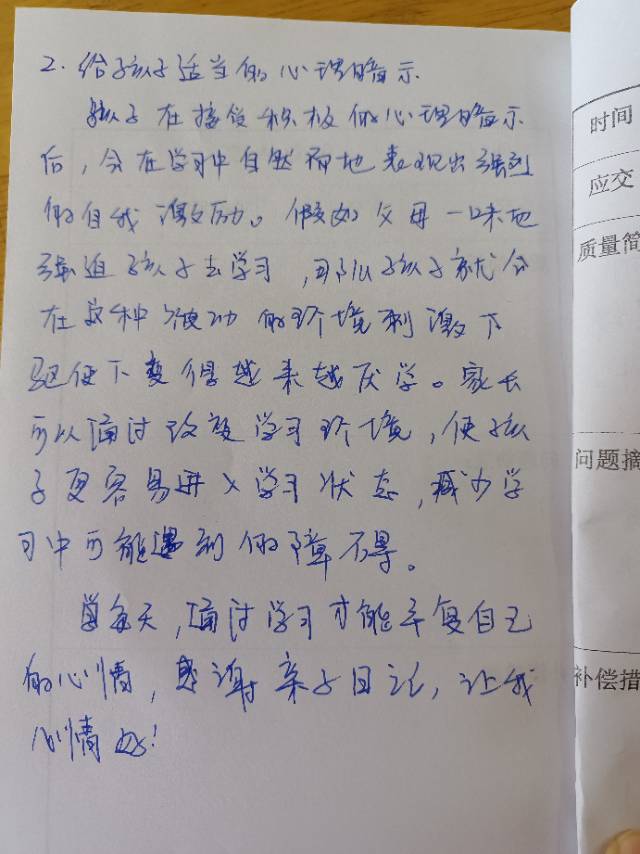 2. 给孩子适当的心理暗示.
孩子在接受积极的心理暗示
后,会在学习中自然而地表现出强烈
的自我激励。假如父母一味地
强迫孩子去学习,那么孩子就会
在这种被动的环境刺激下
驱使下变得越来越厌学。家长
可以通过改变学习环境,使孩
子更容易进入学习状态,减少学
习中可能遇到的障碍。
每天,通过学习才能平复自己
的心情,感谢亲子日记,让我
心情好!
时间
应交
质量简
问题摘
补偿措